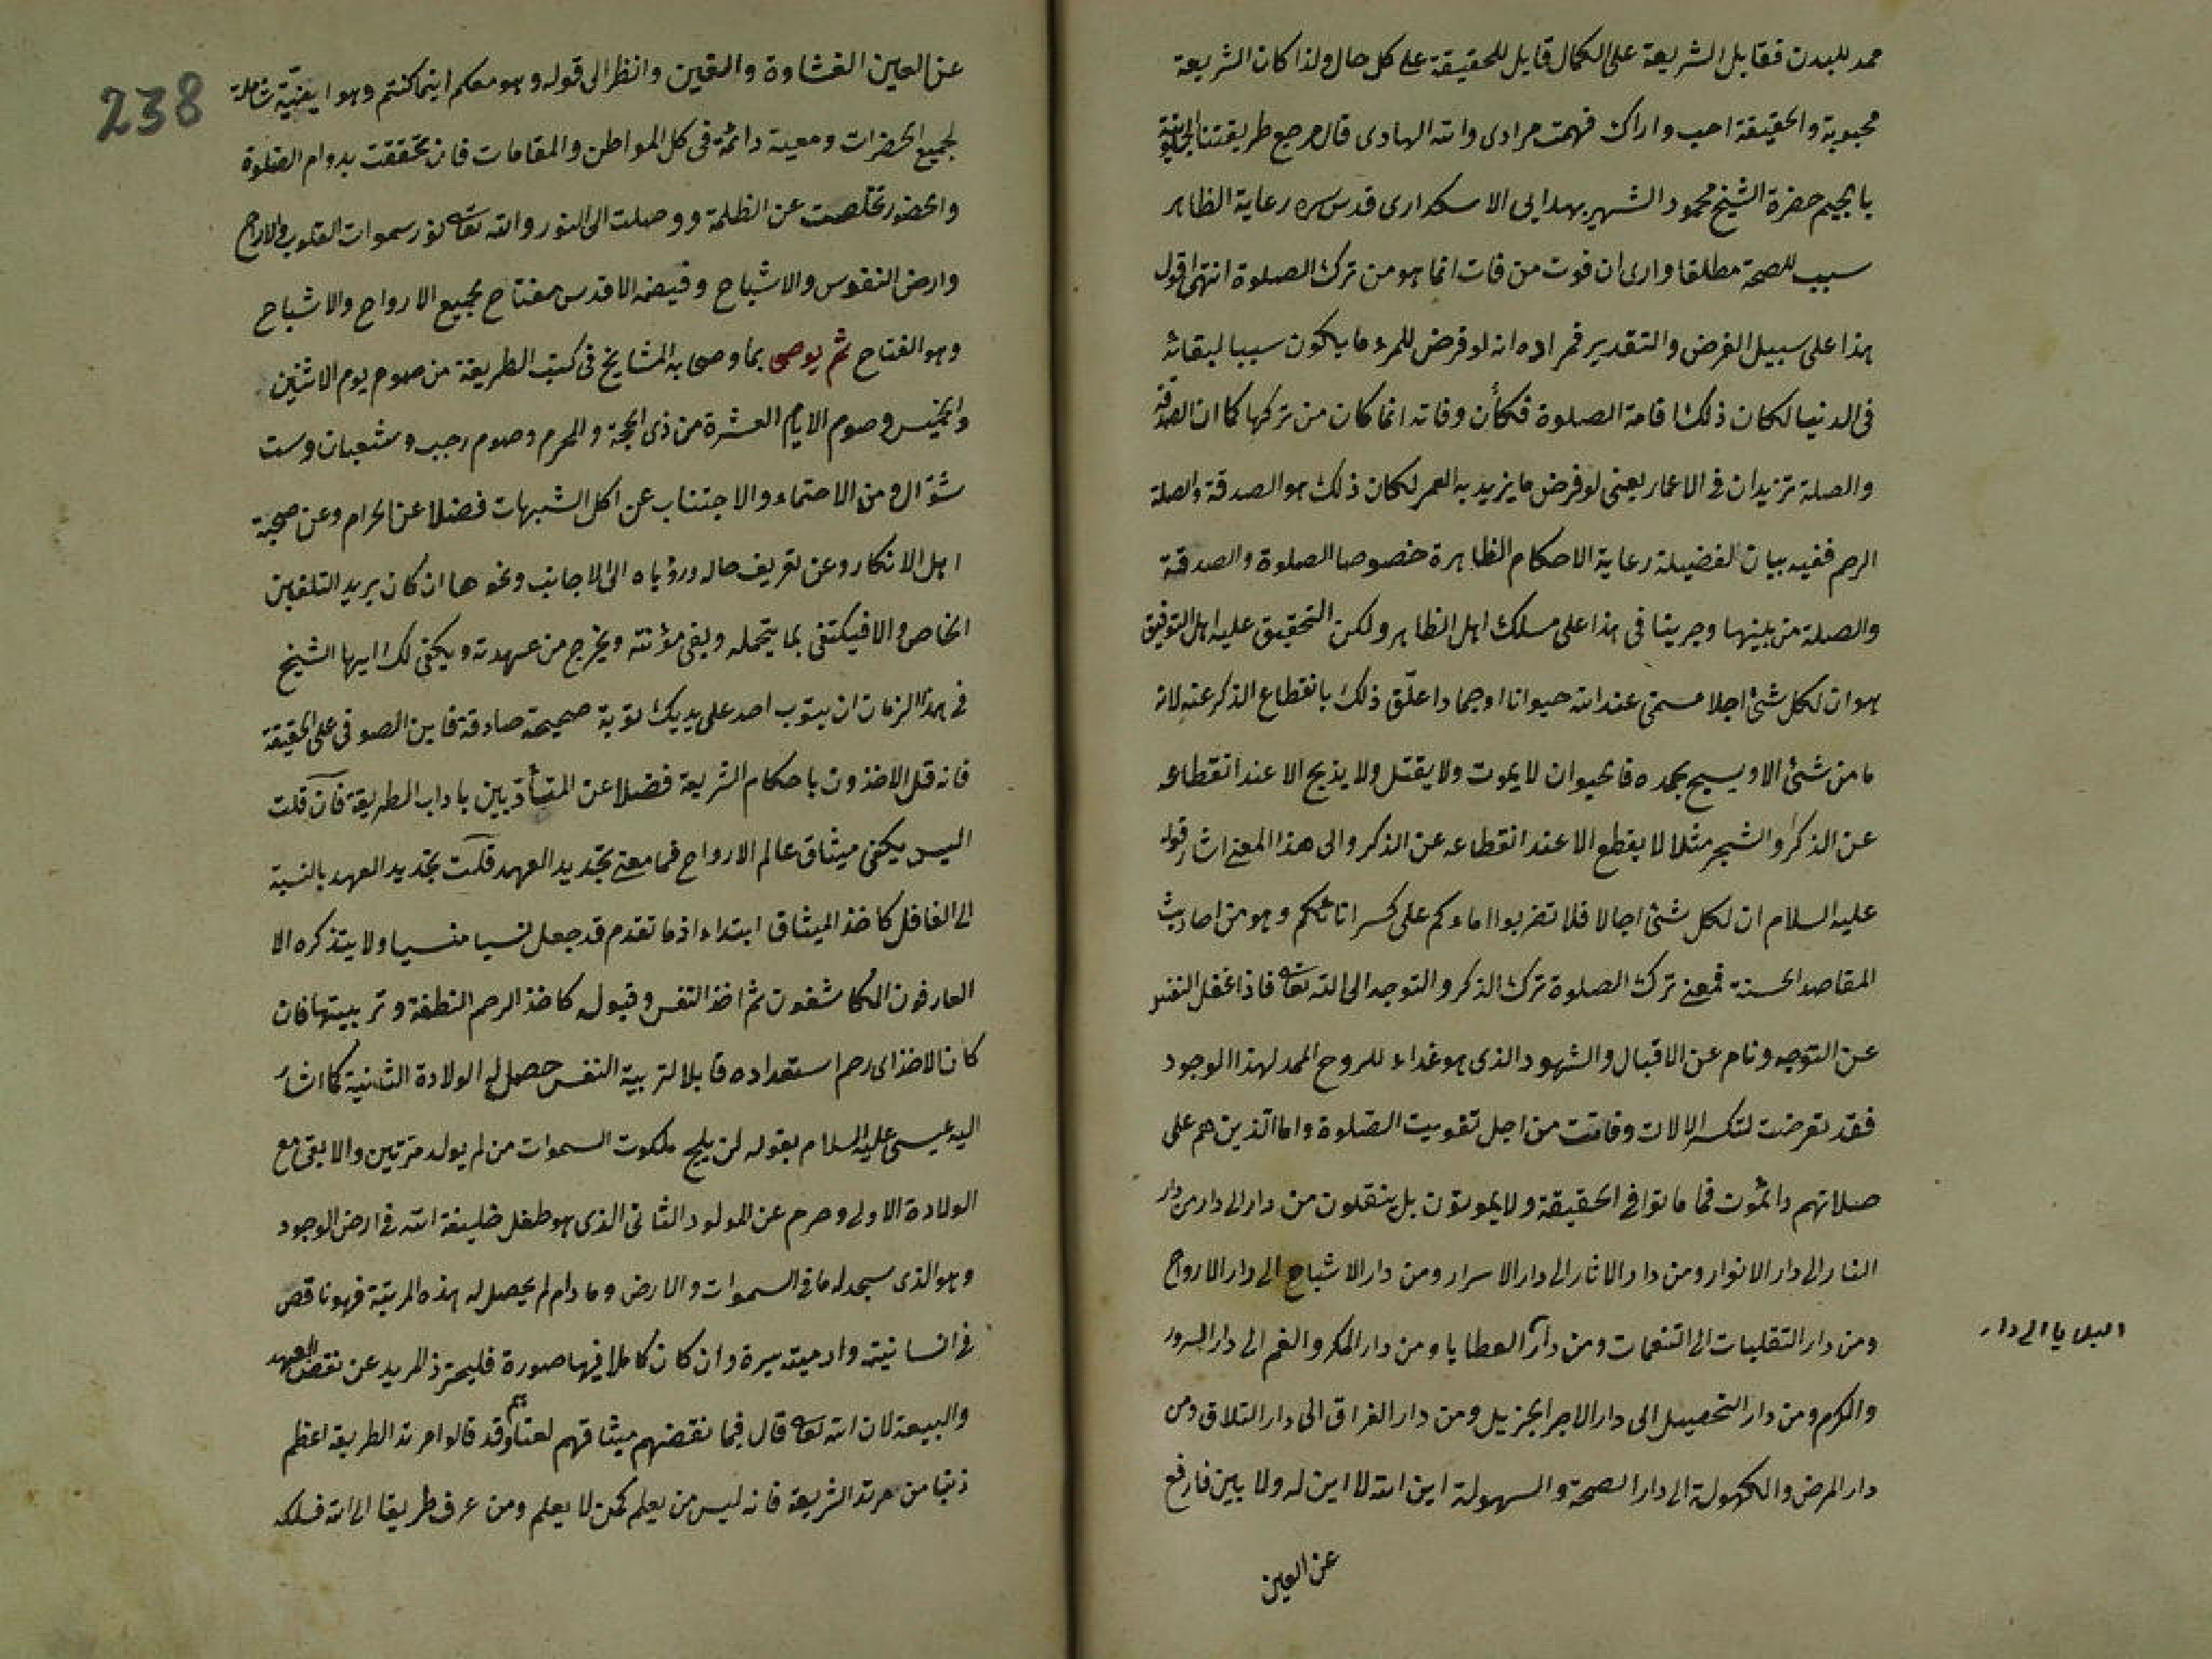 ممد للبدن فقابل الشريعة على الكمال قابل للحقيقة على كل حال ولذا كان الشريعة
محبوبة والحقيقة احب واراك فهمت مرادى والله الهادى قال مرجع طريقتنا الجلوتية
بالجيم حضرة الشيخ محمود الشهير بهدايى الاسكدارى قدس سره رعاية الظاهر
سبب للصحة مطلقا وارى ان فوت من فات انما هو من ترك الصلوة انتهى اقول
هذا على سبيل الفرض والتقدير فمراده انه لو فرض للمرء ما يكون سببا لبقائه
فى الدنيا لكان ذلك اقامة الصلوة فكأن وفاته انما كان من تركها كما ان الصدقة
والصلة تزيدان فى الاعمار يعنى لو فرض ما يزيد به العمر لكان ذلك هو الصدقة والصلة
الرحم ففيه بيان لفضيلة رعاية الاحكام الظاهرة خصوصا الصلوة والصدقة
والصلة من بينها وجرينا فى هذا على مسلك اهل الظاهر ولكن التحقيق عليه اهل التوفيق
هو ان لكل شئ اجلا مسمى عند الله حيوانا او جمادا علّق ذلك بانقطاع الذكر عنه لانه
ما من شئ الا ويسبح بحمده فالحيوان لا يموت ولا يقتل ولا يذبح الا عند انقطاعه
عن الذكر والشجر مثلا لا يقطع الا عند انقطاعه عن الذكر والى هذا المعنى اشار قوله
عليه السلام ان لكل شئ اجالا فلا تضربوا اماءكم على كسر اناثكم وهو من احاديث
المقاصد الحسنة فمعنى ترك الصلوة ترك الذكر والتوجه الى الله تعالى فاذا غفل النفس
عن التوجه ونام عن الاقبال والشهود الذى هو غذاء للروح الممد لهذا الوجود
فقد تعرضت لتكسر الالات وفاتت من اجل تفويت الصلوة واما الذين هم على
صلاتهم دائمون فما ماتوا فى الحقيقة ولا يموتون بل ينقلون من دار الى دار من دار
النار الى دار الانوار ومن دار الاثار الى دار الاسرار ومن دار الاشباح الى دار الارواح
ومن دار التقليبات الى التنعمات ومن دار العطايا ومن دار المكر والغم الى دار السرور
البلايا الى دار
والكرم ومن دار التحصيل الى دار الاجر الجزيل ومن دار الفراق الى دار التلاق ومن
دار المرض والكهولة الى دار الصحة والسهولة اين الله لا اين له ولا بين فارفع
عن العين
238
عن العين الغشاوة والغين وانظر الى قوله وهو معكم اينما كنتم وهو اينيّة شاملة
لجميع الحضرات ومعية دائمة فى كل المواطن والمقامات فان تحققت بدوام الصلوة
والحضور تخلصت عن الظلمة ووصلت الى النور والله تعالى نور سموات القلوب والارواح
وارض النفوس والاشباح وفيضه الاقدس مفتاح لجميع الارواح والاشباح
وهو الفتاح ثم يوصى بما وصى به المشايخ فى كتب الطريقة من صوم يوم الاثنين
والخميس وصوم الايام العشرة من ذى الحجة والمحرم وصوم رجب وشعبان وست
شوّال ومن الاحتماء والاجتناب عن اكل الشبهات فضلا عن الحرام وعن صحبة
اهل الانكار وعن تعريف حاله ورؤياه الى الاجانب ونحوها ان كان يريد التلقين
الخاص والا فيكتفى بما يتحمله ويفى مؤنته ويخرج من عهدته ويكفى لك ايها الشيخ
فى هذا الزمان ان يتوب احد على يديك توبة صحيحة صادقة فاين الصوفى على الحقيقة
فانه قل الاخذون باحكام الشريعة فضلا عن المتأدّبين باداب الطريقة فان قلت
اليس يكفى ميثاق عالم الارواح فما معنى تجديد العهد قلت تجديد العهد بالنسبة
الى الغافل كاخذ الميثاق ابتداء اذ ما تقدم قد جعل نسيا منسيا ولا يتذكره الا
العارفون المكاشفون ثم اخذ النفس وقبوله كاخذ الرحم النطفة وتربيتها فان
كان الاخذ اى رحم استعداده قابلا لتربية النفس حصل له الولادة الثانية كما اشار
اليه عيسى عليه السلام بقوله لن يلج ملكوت السموات من لم يولد مرّتين والا بقى مع
الولادة الاولى وحرم عن المولود الثانى الذى هو طفل خليفة الله فى ارض الوجود
وهو الذى سجد له ما فى السموات والارض وما دام لم يحصل له هذه المرتبة فهو ناقص
فى انسانيته وادميته سيرة وان كان كاملا فيها صورة فليحترز المريد عن نقض العهد
والبيعة لان الله تعالى قال فبما نقضهم ميثاقهم لعناهم وقد قالوا مرتد الطريقة اعظم
ذنبا من مرتد الشريعة فانه ليس من يعلم كمن لا يعلم ومن عرف طريقا الى الله فسلكه